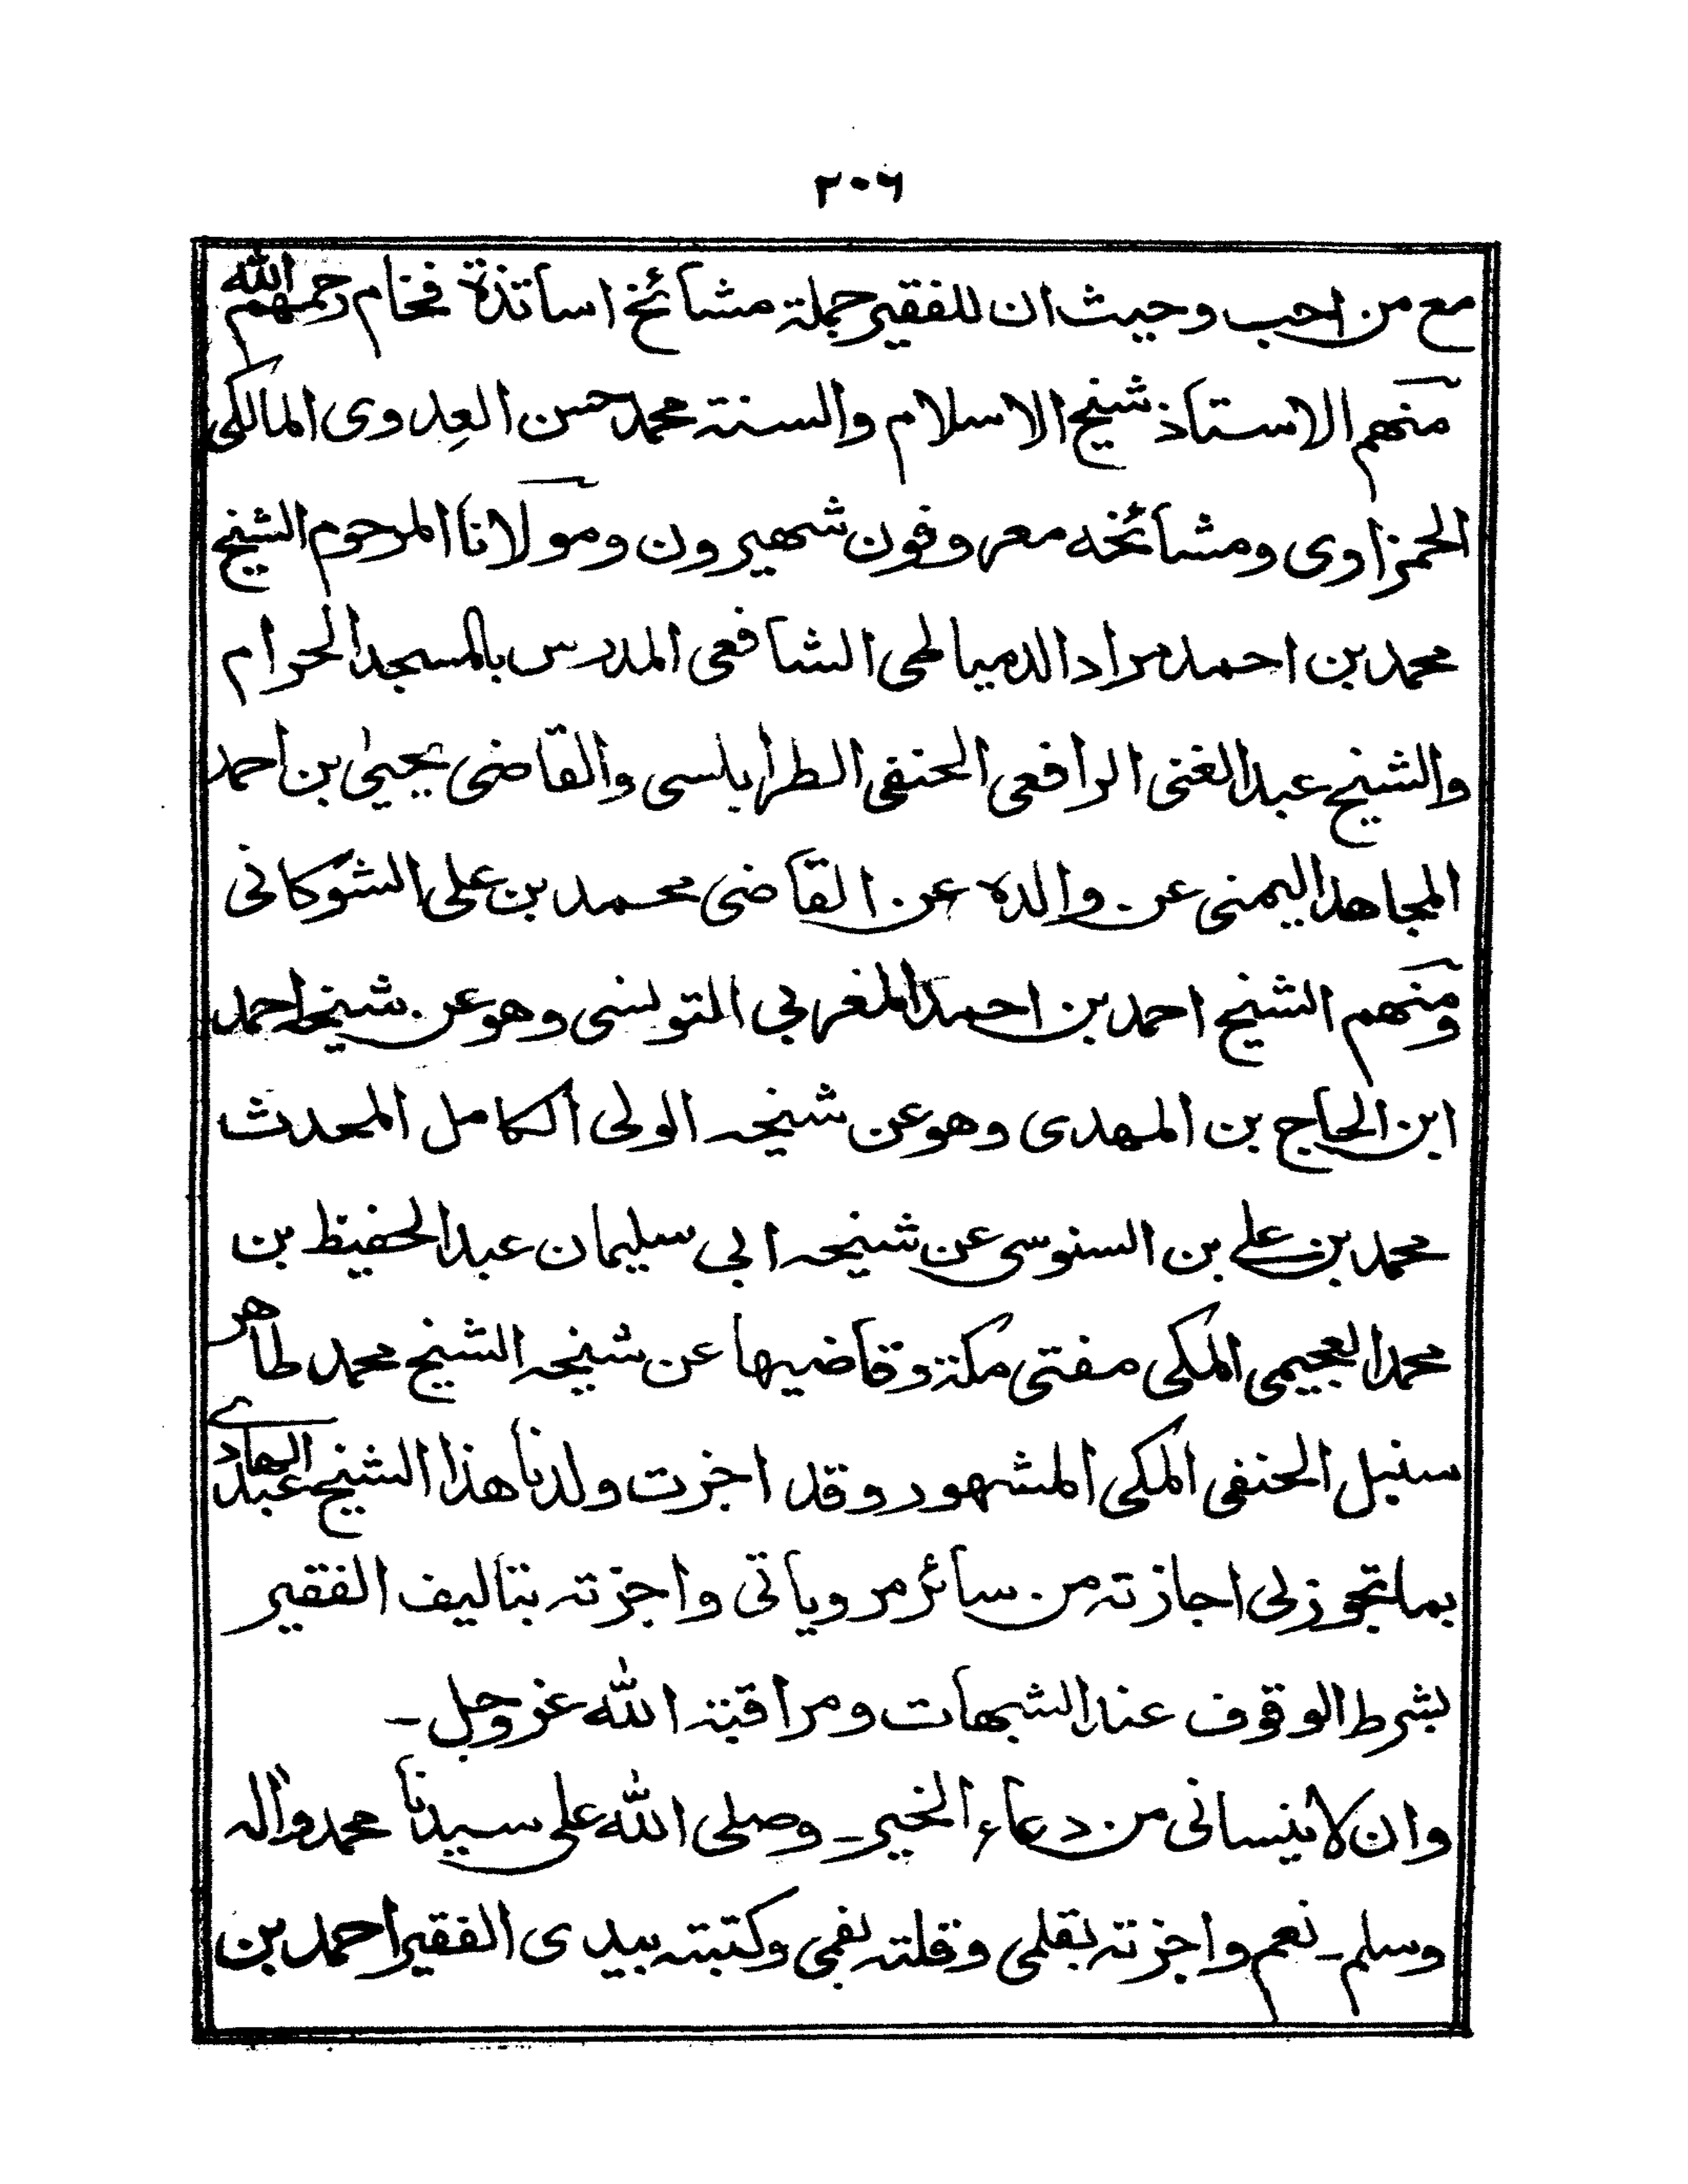 ۲۰۶
مع من احب وحیث ان للفقیر جملۃ مشائخ اساتذۃ فخام رحمهم الله
منهم الاستاذ شیخ الاسلام والسنۃ محمد حسن العِدوی المالکی
الحمزاوی ومشائخه معروفون شهیرون ومولانا المرحوم الشیخ
محمد بن احمد مراد الدمیاطی الشافعی المدرس بالمسجد الحرام
والشیخ عبد الغنی الرافعی الحنفی الطرابلسی والقاضی یحییٰ بن احمد
المجاهد الیمنی عن والده عن القاضی محمد بن علی الشوکانی
ومنهم الشیخ احمد بن احمد المغربی التونسی وهو عن شیخه احمد
ابن الحاج بن المهدی وهو عن شیخه الولی الکامل المحدث
محمد بن علی بن السنوسی عن شیخه ابی سلیمان عبد الحفیظ بن
محمد العجیمی المکی مفتی مکۃ وقاضیها عن شیخه الشیخ محمد طاهر
سنبل الحنفی المکی المشهور وقد اجزت ولدنا هذا الشیخ عبد الهادی
بما تجوز لی اجازته من سائر مرویاتی واجزته بتالیف الفقیر
بشرط الوقوف عند الشبهات ومراقبۃ الله عزوجل ۔
وان لا ینسانی من دعاء الخیر ۔ وصلی الله علی سیدنا محمد واٰله
وسلم ۔ نعم واجزته بقلمی وقلته بفمی وکتبته بیدی الفقیر احمد بن